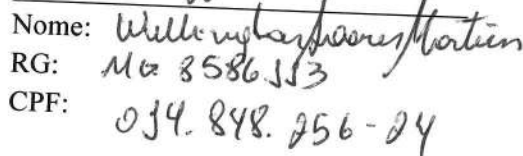 Nome: Wellington Soares Martins
RG: MG 8586113
CPF: 014.848.256-24